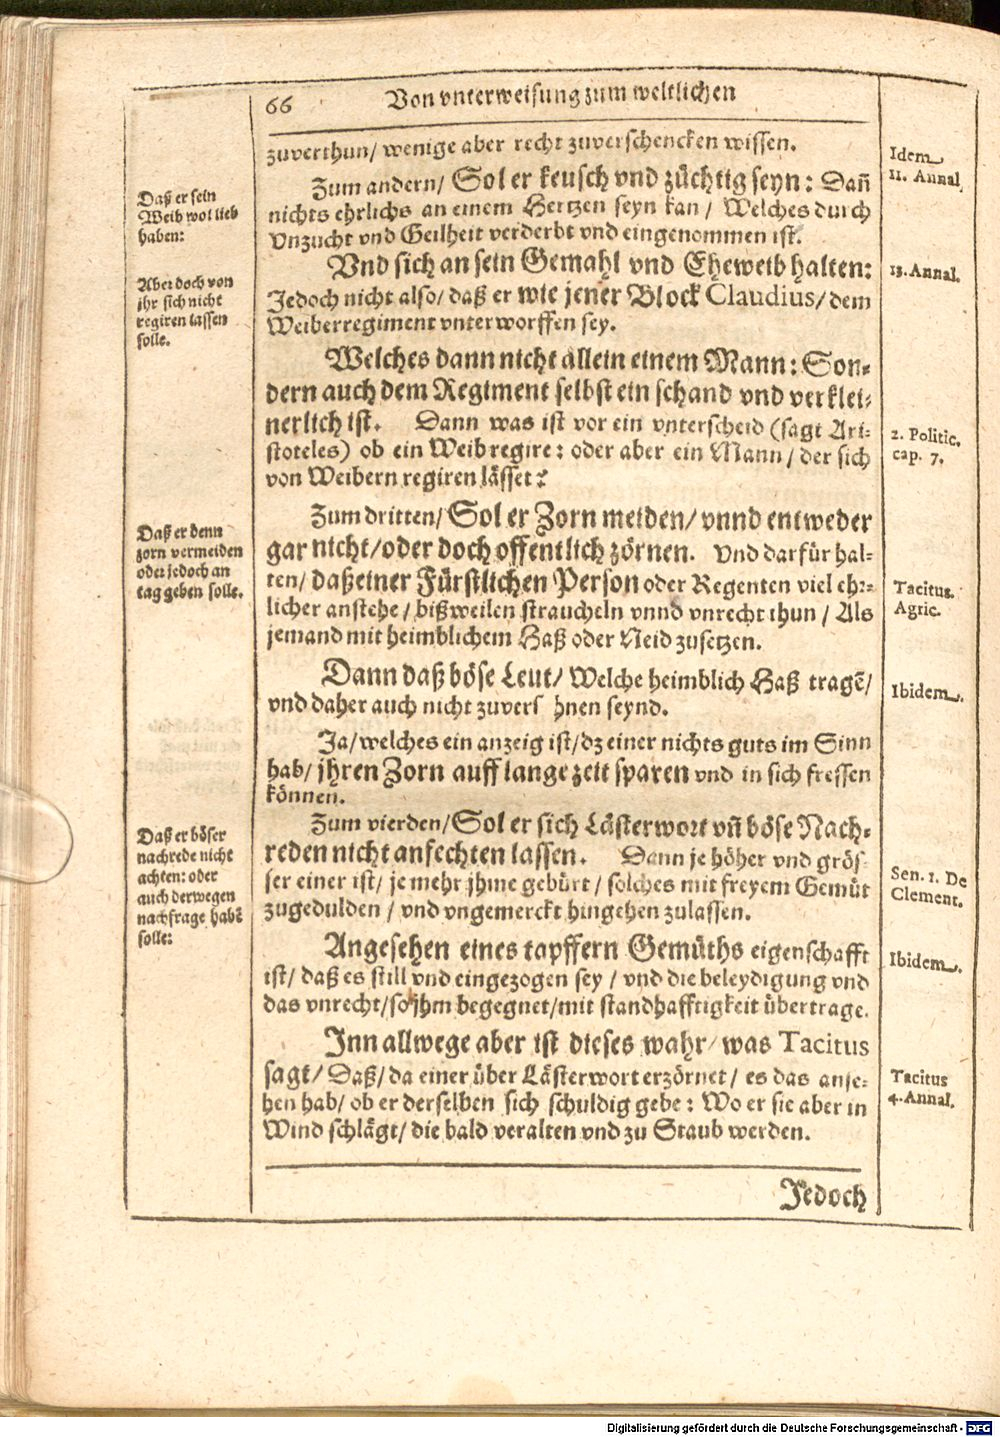 66
Von vnterweisung zum weltlichen
zuverthun/ wenige aber recht zuverschencken wissen.
Idem
11. Annal.
Zum andern/ Sol er keusch vnd züchtig seyn: Dañ
nichts ehrlichs an einem Hertzen seyn kan / Welches durch
Vnzucht vnd Geilheit verderbt vnd eingenommen ist.
Daß er sein
Weib wol lieb
haben:
Vnd sich an sein Gemahl vnd Eheweib halten:
Jedoch nicht also/ daß er wie jener Block Claudius/ dem
Weiberregiment vnterworffen sey.
Aber doch von
jhr sich nicht
regiren lassen
solle.
13. Annal.
Welches dann nicht allein einem Mann: Son-
dern auch dem Regiment selbst ein schand vnd verklei-
nerlich ist. Dann was ist vor ein vnterscheid (sagt Ari-
stoteles) ob ein Weib regire: oder aber ein Mann / der sich
von Weibern regiren lässet?
2. Politic.
cap. 7.
Zum dritten/ Sol er Zorn meiden/ vnnd entweder
gar nicht/ oder doch offentlich zörnen. Vnd darfür hal-
ten/ daß einer Fürstlichen Person oder Regenten viel ehr-
licher anstehe / bißweilen straucheln vnnd vnrecht thun / Als
jemand mit heimblichem Haß oder Neid zusetzen.
Daß er denn
zorn vermeiden
oder jedoch an
tag geben solle.
Tacitus.
Agric.
Dann daß böse Leut/ Welche heimblich Haß tragē/
vnd daher auch nicht zuvers hnen seynd.
Ibidem.
Ja/ welches ein anzeig ist/ dz einer nichts guts im Sinn
hab/ jhren Zorn auff lange zeit sparen vnd in sich fressen
können.
Zum vierden/ Sol er sich Lästerwort vñ böse Nach-
reden nicht anfechten lassen. Dann je höher vnd grös-
ser einer ist/ je mehr jhme gebürt / solches mit freyem Gemüt
zugedulden / vnd vngemerckt hingehen zulassen.
Daß er böser
nachrede nicht
achten: oder
auch derwegen
nachfrage habē
solle:
Sen. 1. De
Clement.
Angesehen eines tapffern Gemüths eigenschafft
ist/ daß es still vnd eingezogen sey / vnd die beleydigung vnd
das vnrecht/ so jhm begegnet/ mit standhafftigkeit übertrage.
Ibidem.
Inn allwege aber ist dieses wahr/ was Tacitus
sagt/ Daß/ da einer über Lästerwort erzörnet / es das anse-
hen hab/ ob er derselben sich schuldig gebe: Wo er sie aber in
Wind schlägt/ die bald veralten vnd zu Staub werden.
Tacitus
4. Annal.
Jedoch
Digitalisierung gefördert durch die Deutsche Forschungsgemeinschaft - DFG